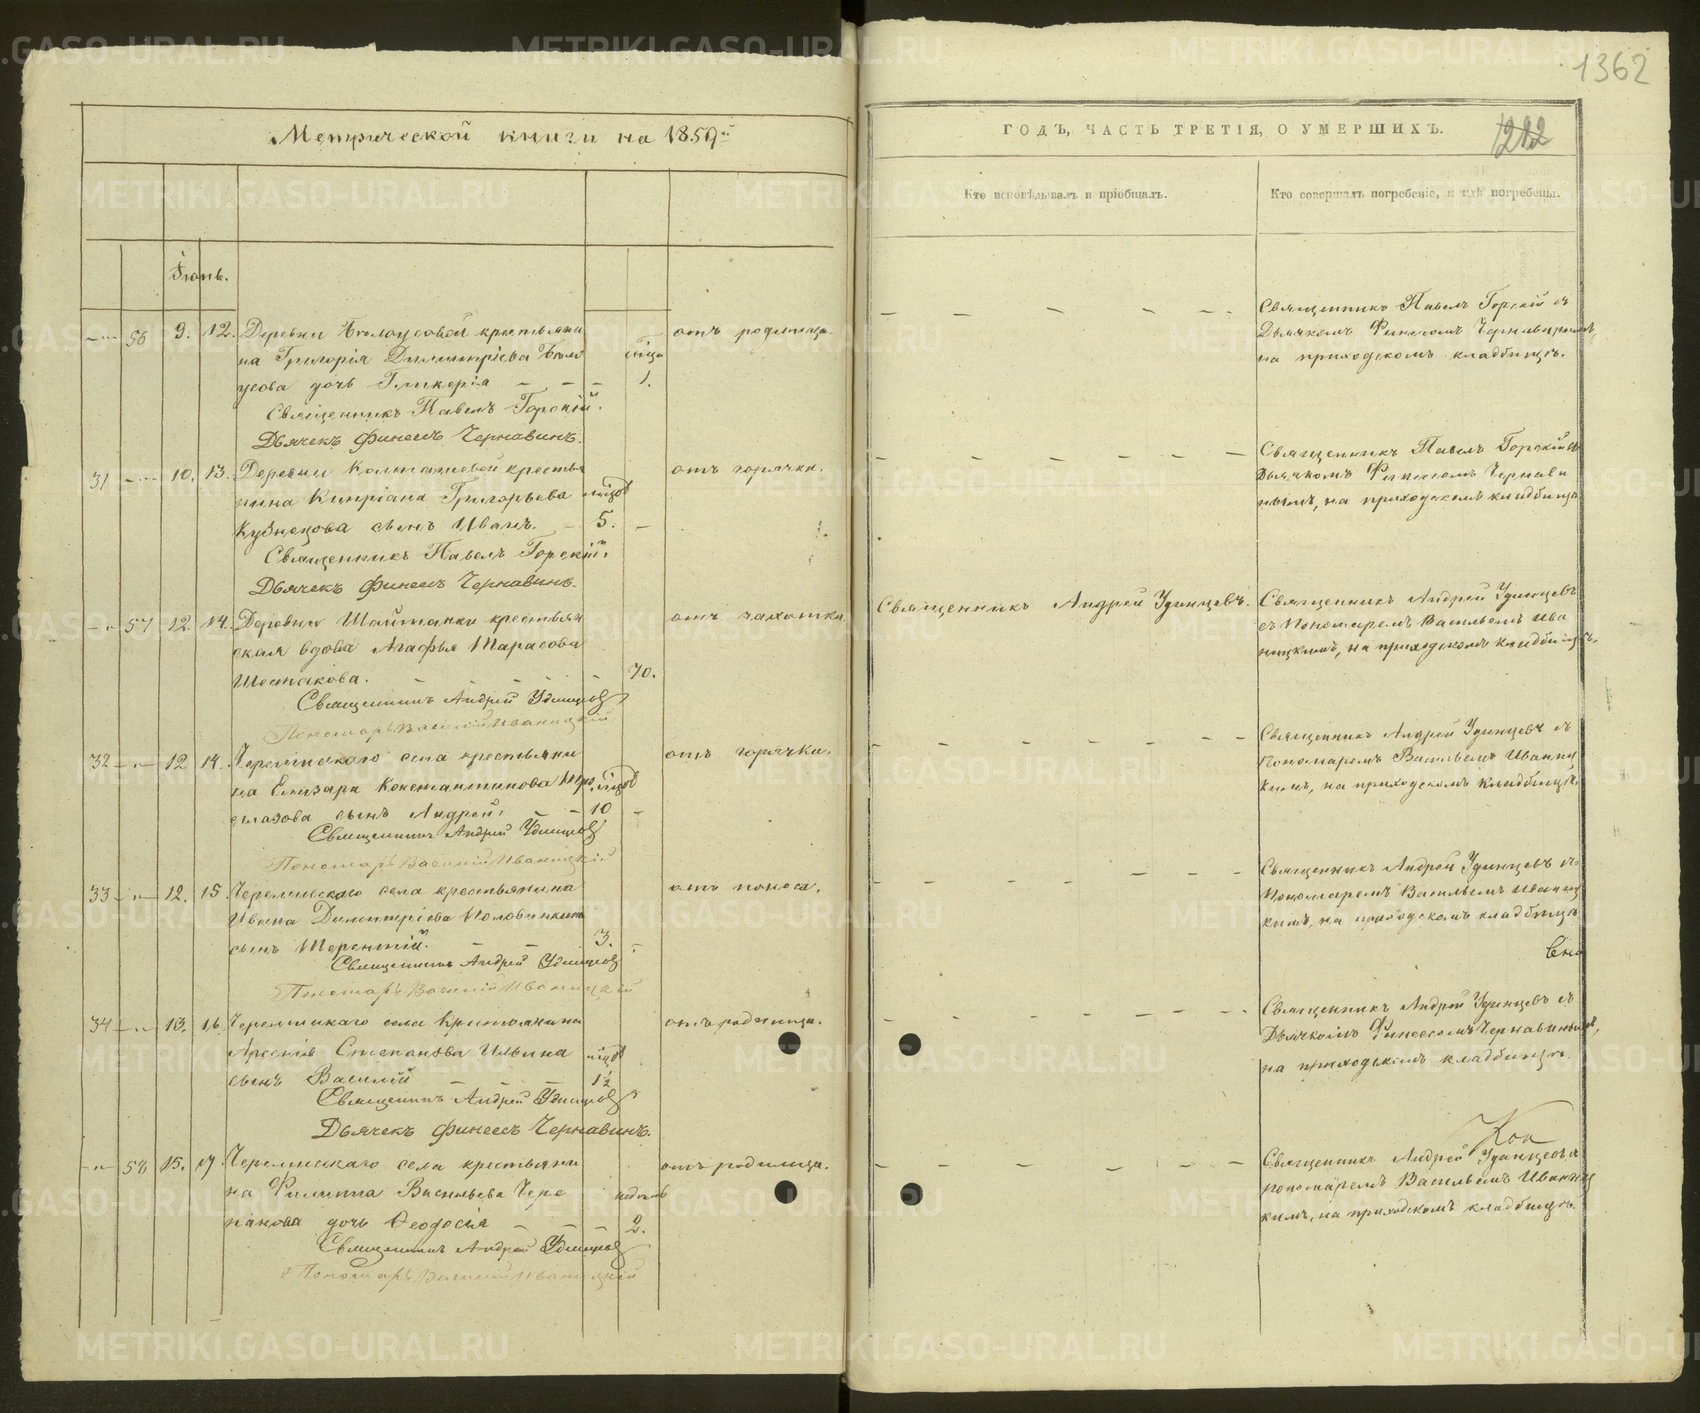 1362
Метрической книги на 1859й
ГОДЪ, ЧАСТЬ ТРЕТІЯ, О УМЕРШИХЪ.
1212
Кто исповѣдывалъ и пріобщалъ.
Кто совершалъ погребеніе, и гдѣ погребены.
Іюнь.
56 9. 12. Деревни Бѣлоусовой крестьяни
на Григорія Димитріева Бѣло
усова дочь Гликерія 1.
отъ родимца.
Священникъ Павелъ Горскій.
Дьячекъ Финеесъ Чернавинъ.
Священникъ Павелъ Горскій съ
Дьячкомъ Финеесомъ Чернавинымъ,
на приходскомъ кладбищѣ.
31 10. 13. Деревни Колташевой крестья
нина Кипріана Григорьева
Кузнецова сынъ Иванъ. 5.
отъ горячки.
Священникъ Павелъ Горскій.
Дьячекъ Финеесъ Чернавинъ.
Священникъ Павелъ Горскій съ
Дьячкомъ Финеесомъ Чернави
нымъ, на приходскомъ кладбищѣ
57 12. 14. Деревни Шайтанки крестьян
ская вдова Агафья Тарасова
Шестакова. 70.
отъ чахотки
Священникъ Андрей Удинцевъ
Пономарь Василій Иваницкій
Священникъ Андрей Удинцевъ.
Священникъ Андрей Удинцевъ
съ Пономаремъ Васильемъ Ива
ницкимъ, на приходскомъ кладбищѣ.
32 12 14. Черемисскаго села крестьяни
на Елизара Константинова
сынъ Андрей. 10
отъ горячки.
Священникъ Андрей Удинцевъ
Пономарь Василій Иваницкій
Священникъ Андрей Удинцевъ съ
Пономаремъ Васильемъ Иваниц
кимъ, на приходскомъ кладбищѣ.
33 12. 15 Черемисскаго села крестьянина
Ивана Димитріева Половинкина
сынъ Терентій. 3.
отъ поноса.
Священникъ Андрей Удинцевъ
Пономарь Василій Иваницкій
Священникъ Андрей Удинцевъ съ
Пономаремъ Васильемъ Иваниц
кимъ, на приходскомъ кладбищѣ
34 13. 16. Черемисскаго села крестьянина
Арсенія Степанова Ильина
сынъ Василій 1½
отъ родимца.
Священникъ Андрей Удинцевъ
Дьячекъ Финеесъ Чернавинъ.
Священникъ Андрей Удинцевъ съ
Дьячкомъ Финеесомъ Чернавинымъ,
на приходскомъ кладбищѣ.
58 15. 17. Черемисскаго села крестьяни
на Филиппа Васильева Чере
панова дочь Ѳеодосія 2.
недѣль
отъ родимца.
Священникъ Андрей Удинцевъ
Пономарь Василій Иваницкій
Священникъ Андрей Удинцевъ съ
пономаремъ Васильемъ Иваниц
кимъ, на приходскомъ кладбищѣ.
METRIKI.GASO-URAL.RU